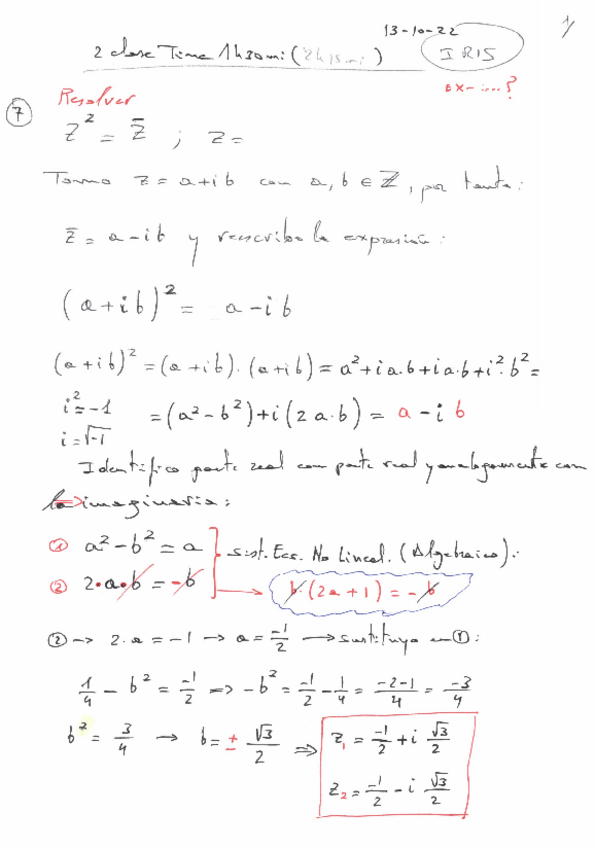 13-10-22
1/
2 clase Time 1h30mi (2h15mi)
IRIS
ex-....?
Resolver
7
z² = z̄ ; z=
Tomo z = a+ib con a, b ∈ ℤ, por tanto:
z̄ = a-ib y reescribo la expresión:
(a+ib)² = a-ib
(a+ib)² = (a+ib)·(a+ib) = a²+ia·b+ia·b+i²·b² =
i²=-1 = (a²-b²)+i(2a·b) = a-ib
i=√-1
Identifico parte real con parte real y analogamente con
la imaginaria:
① a²-b² = a
Sist. Ecs. No Lineal. (Algebraico).
② 2·a·b = -b → b(2a+1) = -b
② → 2·a = -1 → a = -1/2 → sustituyo en ①:
1/4 - b² = -1/2 => -b² = -1/2 - 1/4 = -2-1/4 = -3/4
b² = 3/4 → b = ± √3/2 => z₁ = -1/2 + i √3/2
z₂ = -1/2 - i √3/2